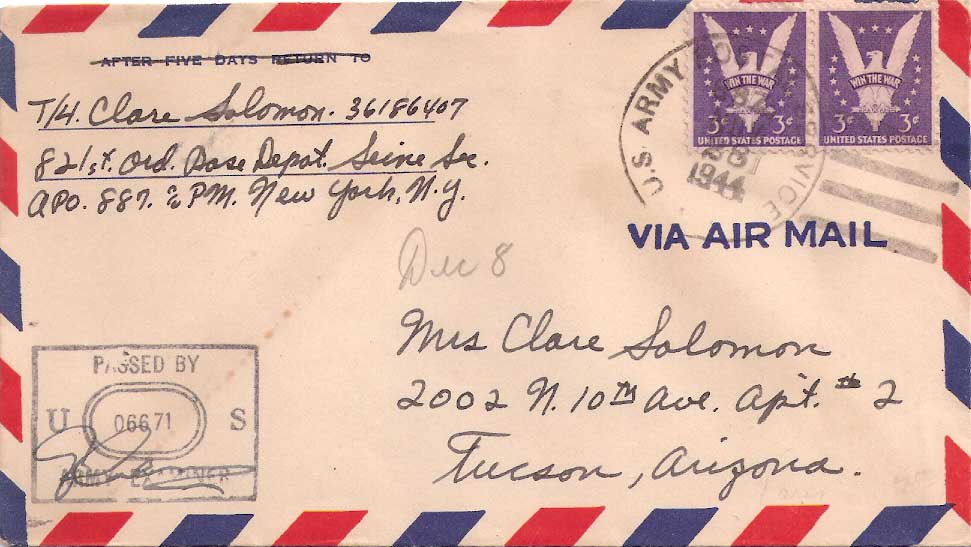 AFTER FIVE DAYS RETURN TO
T/4. Clare Solomon. 36186407
821st. Ord. Base Depot. Seine Sec.
APO. 887. % PM. New York, N.Y.
WIN THE WAR
3¢ 3¢
UNITED STATES POSTAGE
WIN THE WAR
3¢ 3¢
UNITED STATES POSTAGE
U.S. ARMY POSTAL SERVICE
1944
VIA AIR MAIL
Dec 8
Mrs Clare Solomon
2002 N. 10th Ave. Apt. # 2
Tucson, Arizona.
PASSED BY
U 06671 S
ARMY EXAMINER